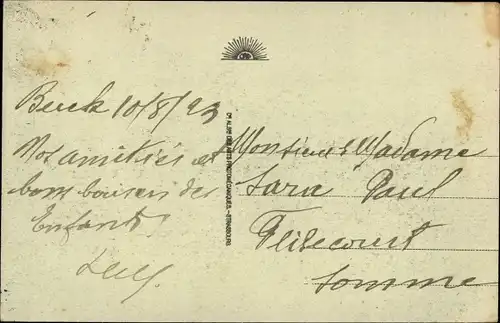 Berck 10/8/23
Nos amitiés et
bons baisers des
Enfants
CIE ALSACIENNE DES ARTS PHOTOMÉCANIQUES - STRASBOURG
Monsieur & Madame
Sara Paul
Flixecourt
Somme